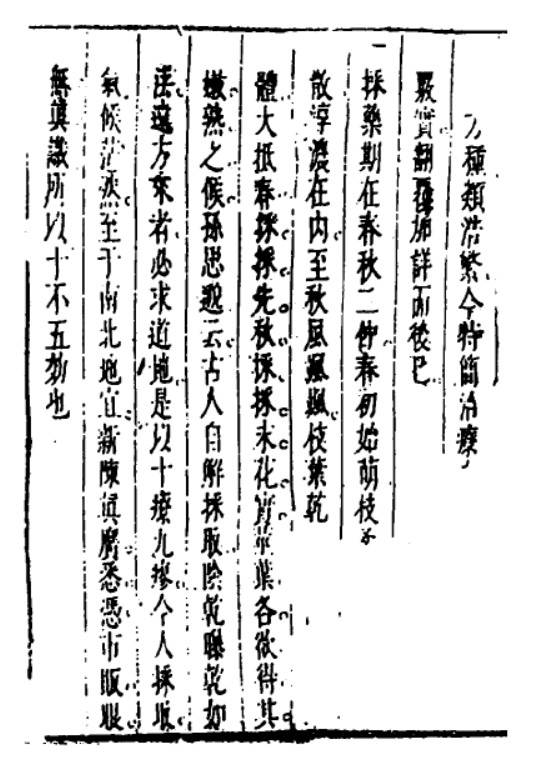 方種類浩繁今特簡治療
數實翻覆加詳而後已
一採藥期在春秋二仲春初始萌枝
散淳濃在内至秋風颯颯枝葉乾
體大抵春採採先秋採採末花實莖葉各欲得其
嫩熟之候孫思邈云古人自解採取陰乾曝乾如
法遠方來者必求道地是以十療九瘳今人採取
氣候茫然至于南北地宜新陳真贋悉憑市販
無真識所以十不五効也